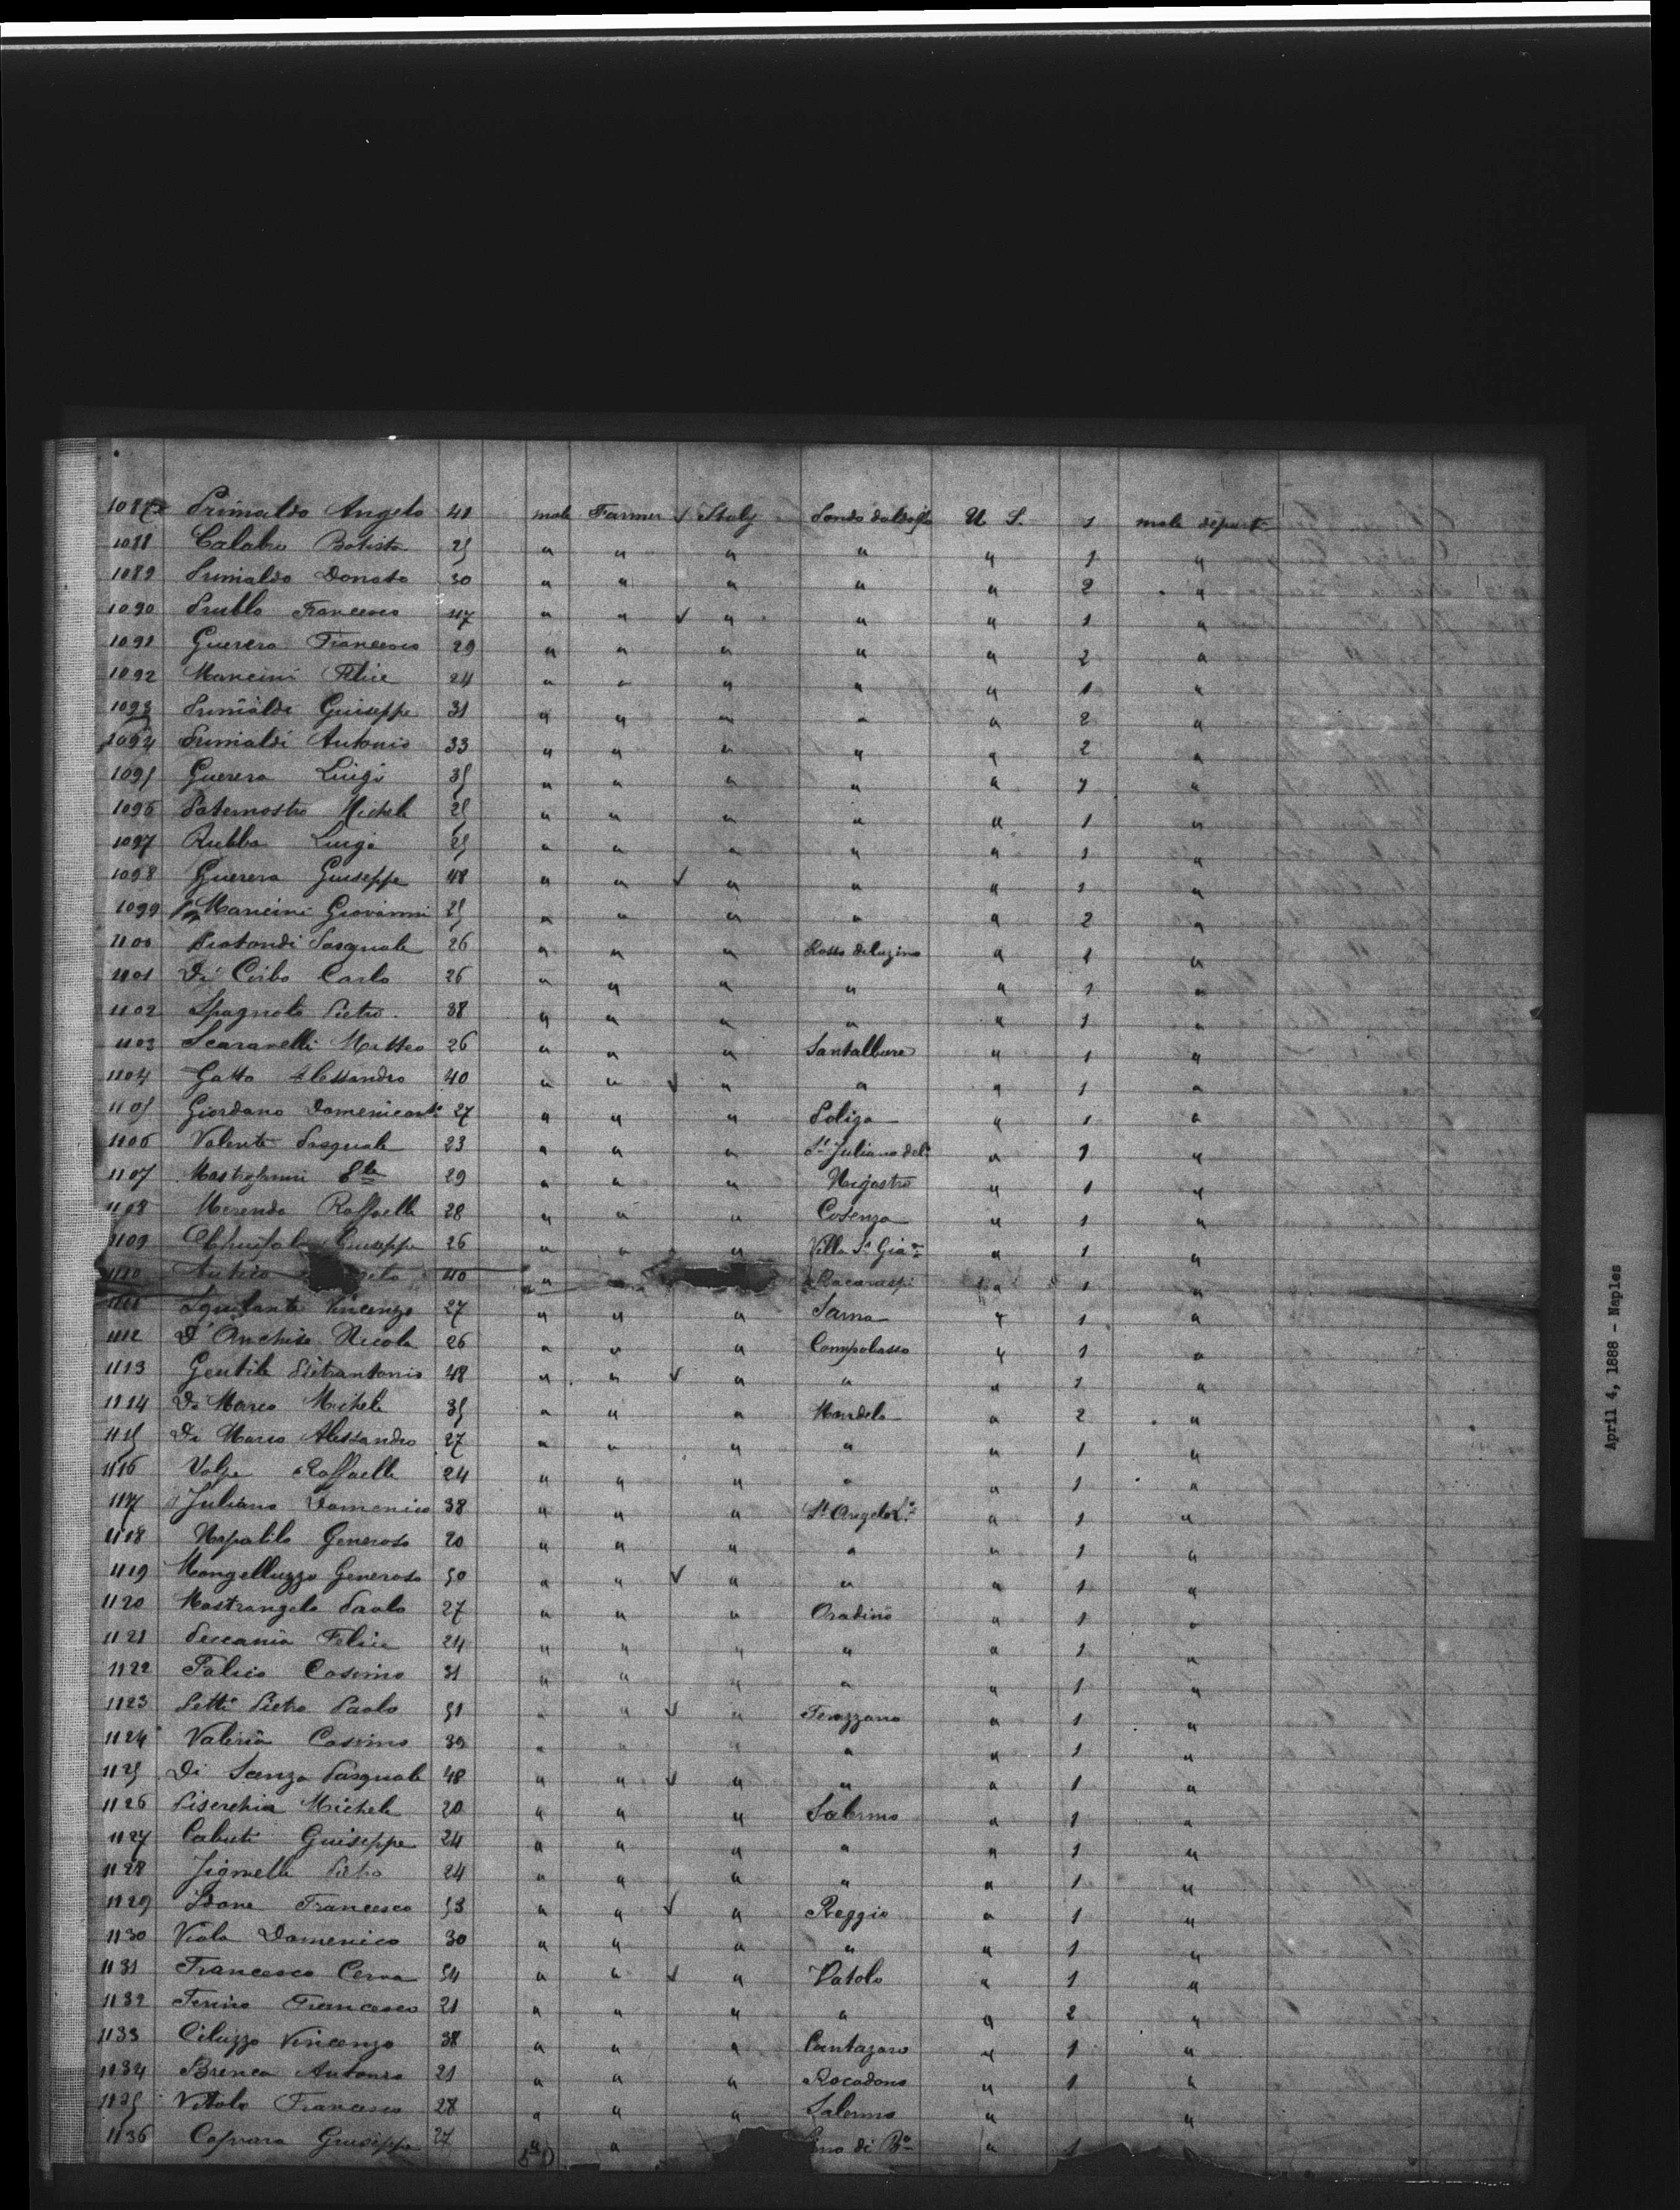 1087 Primaldo Angelo 41 male Farmer Italy U S. 1 male depart
1088 Calabro Batista 25 " " " " " 1 "
1089 Primaldo Donato 30 " " " " " 2 "
1090 Francesco 47 " " " " " 1 "
1091 Guerera Francesco 29 " " " " " 2 "
1092 Mancini Felice 24 " " " " " 1 "
1093 Primaldi Guiseppe 31 " " " " " 2 "
1094 Primaldi Antonio 33 " " " " " 2 "
1095 Guerera Luigi 35 " " " " " "
1096 Paternostro Michele 25 " " " " " 1 "
1097 Rubba Luigi 25 " " " " " 1 "
1098 Guerera Guiseppe 48 " " " " " 1 "
1099 Mancini Giovanni 25 " " " " " 2 "
1100 Pasquale 26 " " " " 1 "
1101 Di Cirbo Carlo 26 " " " " " 1 "
1102 Spagnolo Pietro 38 " " " " " 1 "
1103 Scaranelli Matteo 26 " " " " 1 "
1104 Gatto Alessandro 40 " " " " " 1 "
1105 Giordano 27 " " " Poliza " 1 "
1106 Valente Pasquale 23 " " " St Juliano del " 1 "
1107 29 " " " Nigastro " 1 "
1108 Merenda Raffaelle 28 " " " Cosenza " 1 "
1109 Guiseppe 26 " " " Villa St Gia " 1 "
1110 40 " " 1 "
1111 Squitante Vincenzo 27 " " " Sarno " 1 "
1112 D'Anchise Nicola 26 " " " Campobasso " 1 "
1113 Gentile Pietrantonio 48 " " " " " 1 "
1114 De Marco Michele 35 " " " Mandela " 2 "
1115 De Marco Alessandro 27 " " " " " 1 "
1116 Volpe Raffaelle 24 " " " " " 1 "
1117 Juliano Domenico 38 " " " St Angelo " 1 "
1118 Generoso 20 " " " " " 1 "
1119 Mongelluzzo Generoso 50 " " " " " 1 "
1120 Mastrangelo Paolo 27 " " " Oradino " 1 "
1121 Peccania Felice 24 " " " " " 1 "
1122 Falico Cosimo 31 " " " " " 1 "
1123 Petti Pietro Paolo 51 " " " " 1 "
1124 Valeria Cosimo 39 " " " " " 1 "
1125 Di Scanza Pasquale 48 " " " " " 1 "
1126 Piserchia Michele 20 " " " Salerno " 1 "
1127 Cabuti Guiseppe 24 " " " " " 1 "
1128 Pietro 24 " " " " " 1 "
1129 Idone Francesco 53 " " " Reggio " 1 "
1130 Viola Domenico 30 " " " " " 1 "
1131 Francesco Cerva 54 " " " Vatolo " 1 "
1132 Francesco 21 " " " " " 2 "
1133 Ciluzzo Vincenzo 38 " " " Cantazaro " 1 "
1134 Brenca Antonio 21 " " " Rocadono " 1 "
1135 Vitolo Francesco 28 " " " Salerno " "
1136 Caprara Guiseppe 27 " " di " 1
April 4, 1888 - Naples